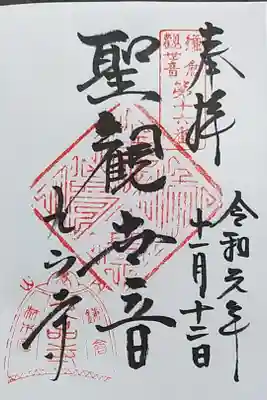 奉拝
鎌倉
観世音第十六番
聖観世音
九品寺
令和元年
十一月十二日
鎌倉
九品寺